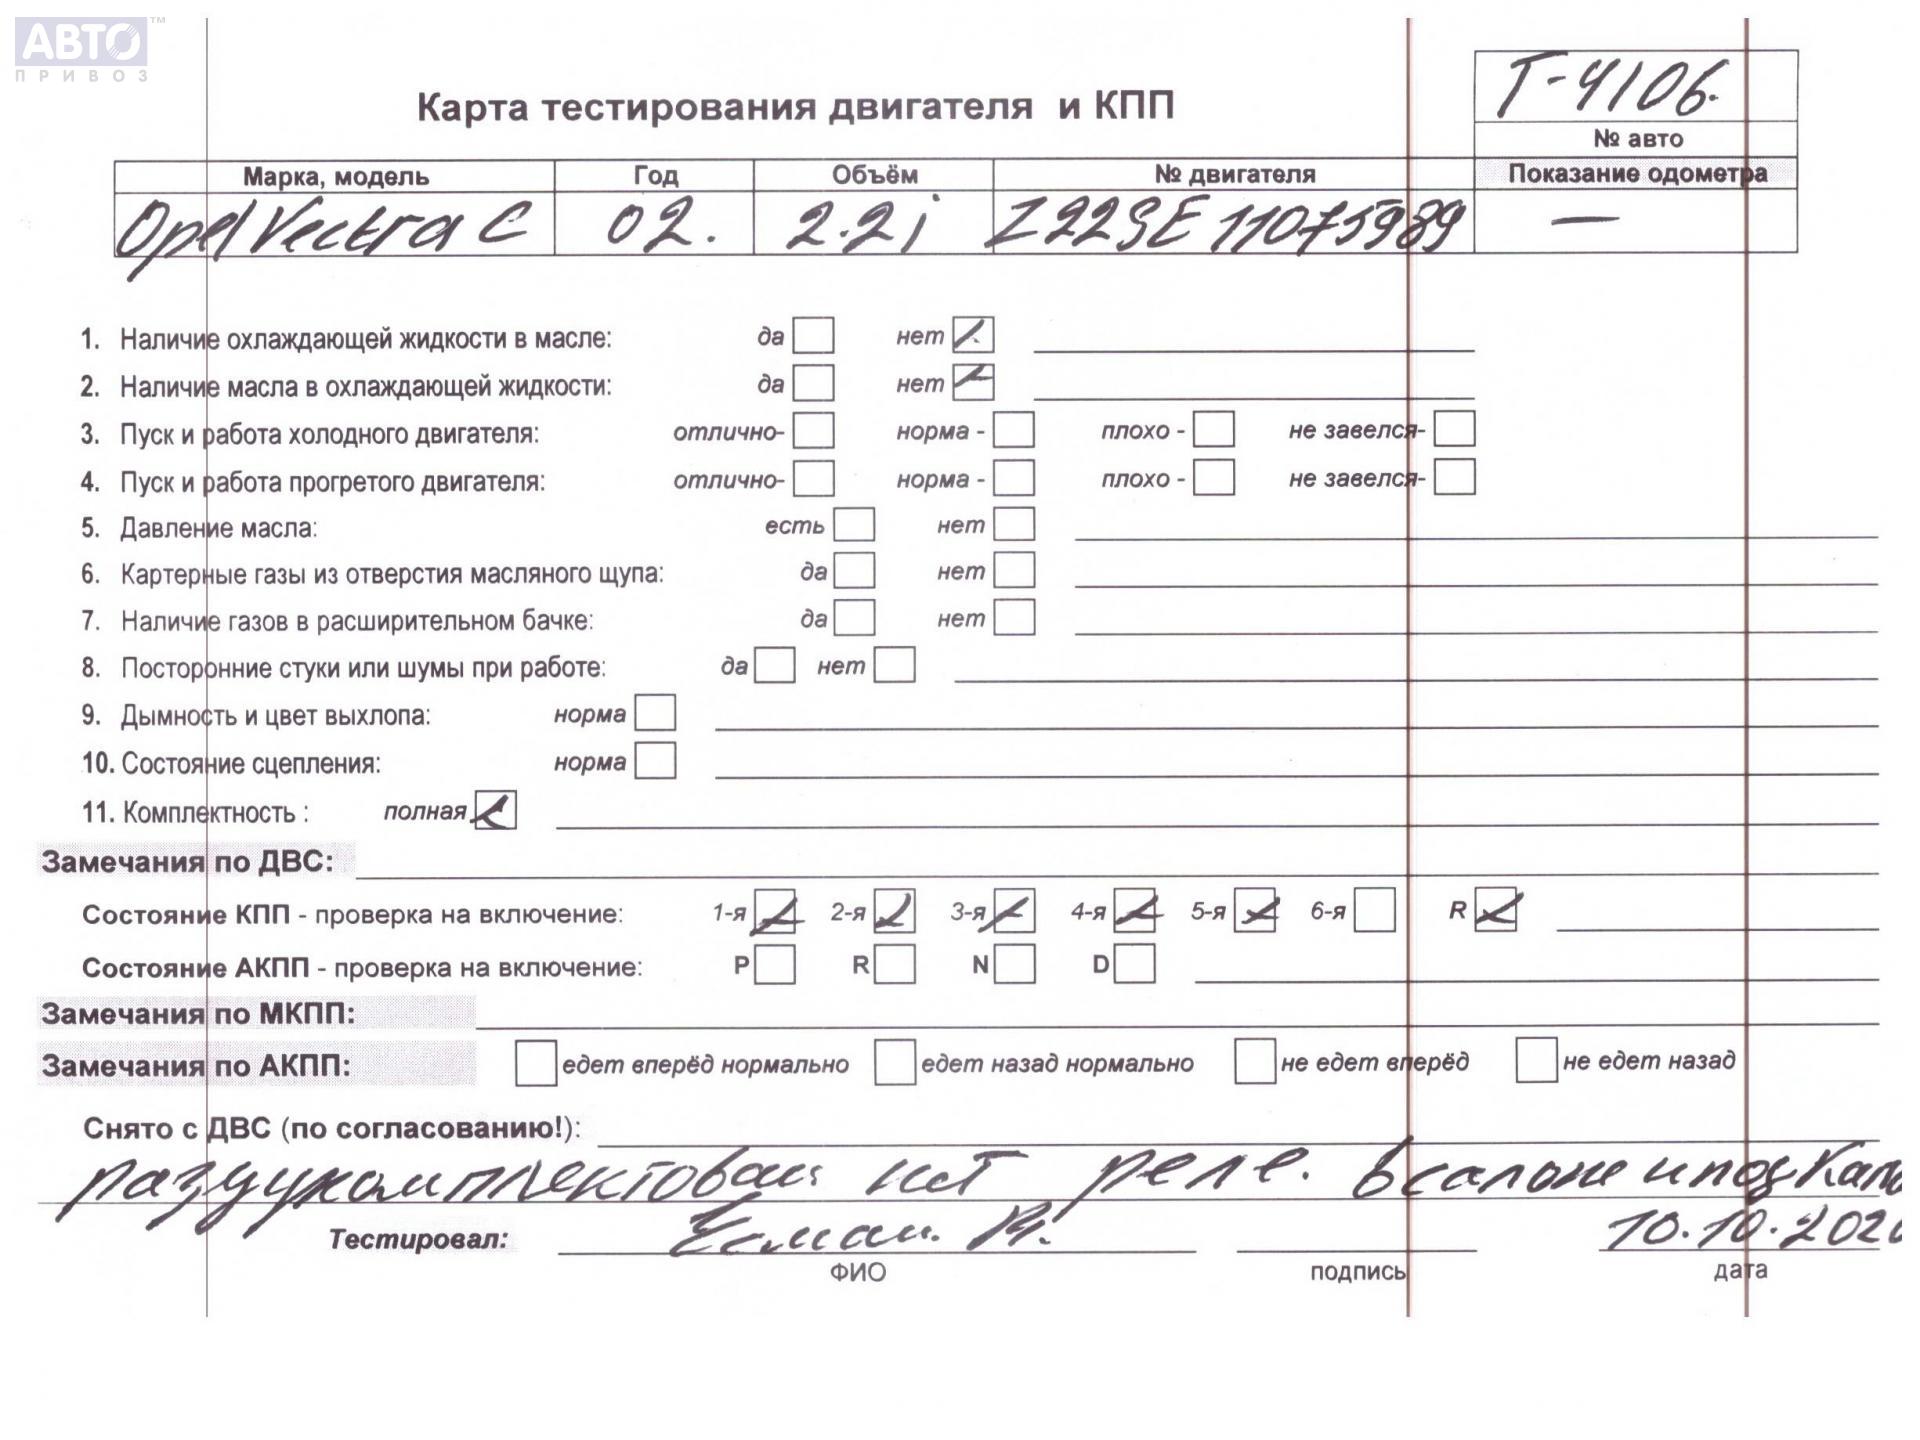 АВТО™
ПРИВОЗ
Т-4106.
Карта тестирования двигателя и КПП
№ авто
Марка, модель Год Объём № двигателя Показание одометра
Opel Vectra C 02. 2.2i Z22SE 11075989 —
1. Наличие охлаждающей жидкости в масле: да нет
2. Наличие масла в охлаждающей жидкости: да нет
3. Пуск и работа холодного двигателя: отлично- норма - плохо - не завелся-
4. Пуск и работа прогретого двигателя: отлично- норма - плохо - не завелся-
5. Давление масла: есть нет
6. Картерные газы из отверстия масляного щупа: да нет
7. Наличие газов в расширительном бачке: да нет
8. Посторонние стуки или шумы при работе: да нет
9. Дымность и цвет выхлопа: норма
10. Состояние сцепления: норма
11. Комплектность : полная
Замечания по ДВС:
Состояние КПП - проверка на включение: 1-я 2-я 3-я 4-я 5-я 6-я R
Состояние АКПП - проверка на включение: P R N D
Замечания по МКПП:
Замечания по АКПП: едет вперёд нормально едет назад нормально не едет вперёд не едет назад
Снято с ДВС (по согласованию!):
нет реле. в салоне и под капо
Тестировал: 10.10.202
ФИО подпись дата